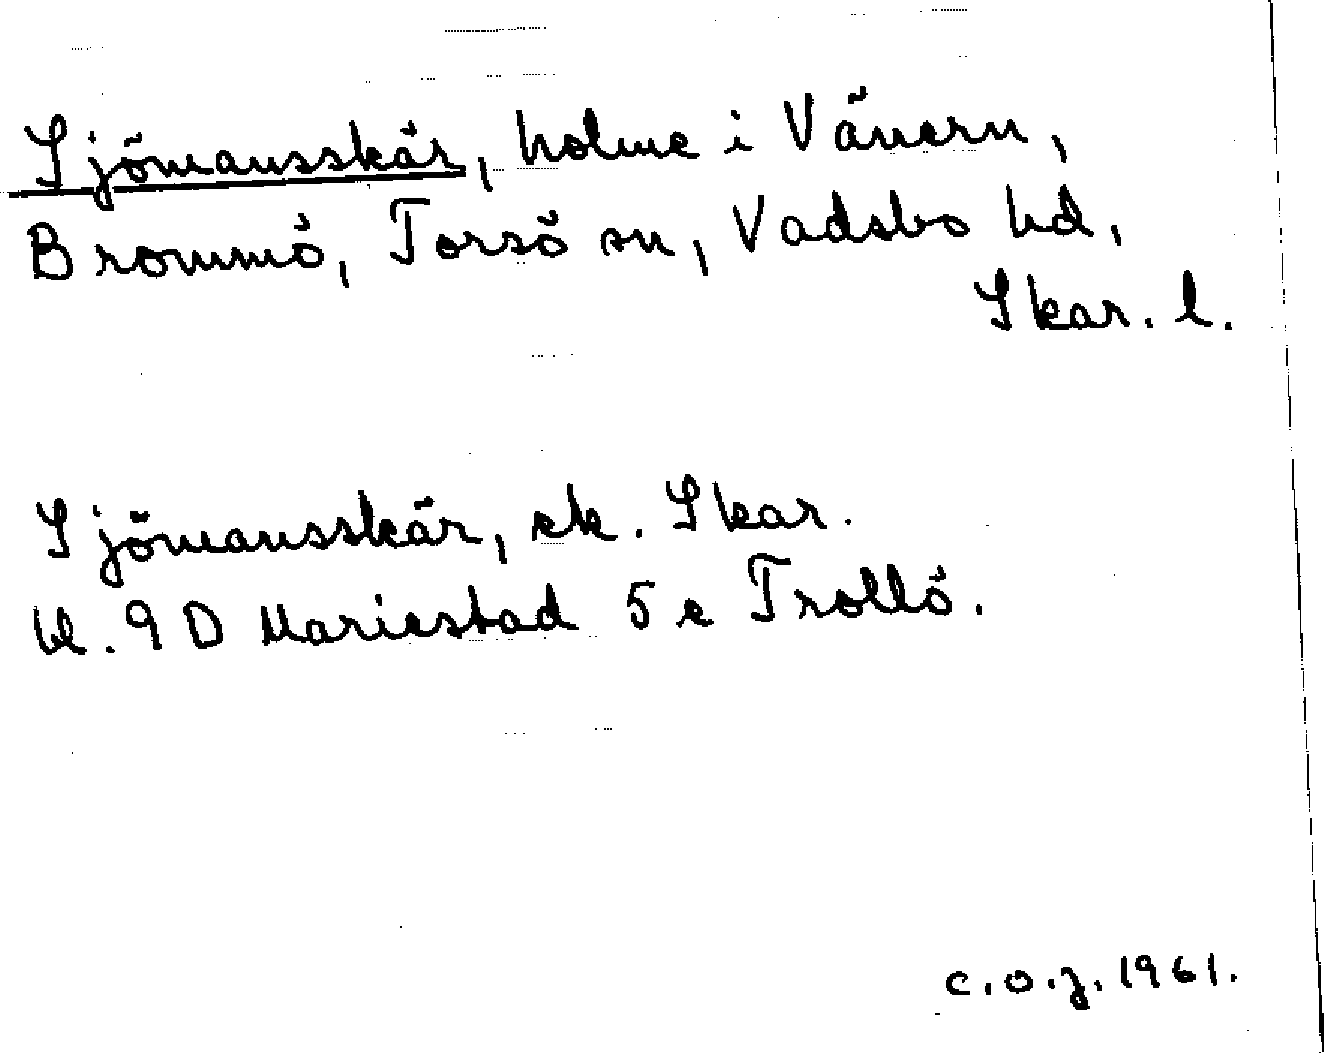 Sjömansskär, holme i Vänern,
Brommö, Torsö sn, Vadsbo hd,
Skar. l.
Sjömansskär, ek. Skar.
bl. 9 D Mariestad 5 e Trollö.
C.O.J. 1961.